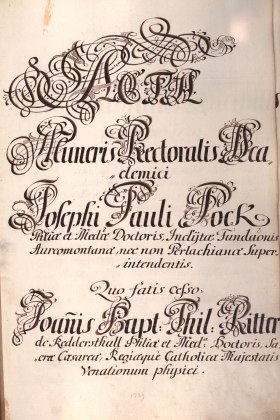 ACTA
Muneris Rectoralis Aca
demici
Josephi Pauli Pock
Philiæ et Mediæ Doctoris, Inclÿtæ Fundaōnis
Aureomontanæ, nec non Perlachianæ Super-
intendentis.
Quo fatis cesso.
Joan̄is Bapt: Phil: Ritter
de Reddersthall Philiæ et Medæ Doctoris, Sa-
cræ Cæsareæ, Regiæquè Catholicæ Majestatis
Venationum physici.